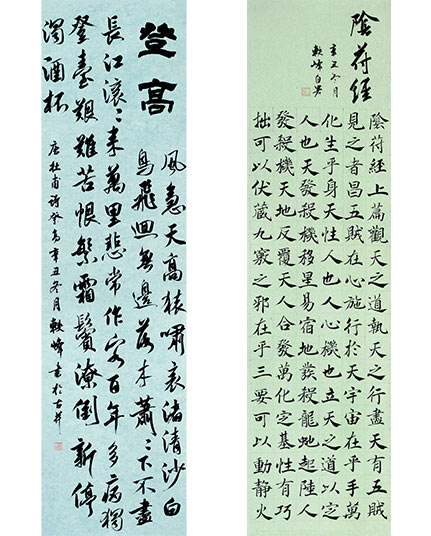 登高
風急天高猿嘯哀渚清沙白
鳥飛迴無邊落木蕭〻下不盡
長江滾〻來萬里悲常作客百年多病獨
登臺艱難苦恨繁霜鬢潦倒新停
濁酒杯
唐杜甫詩登高辛丑冬月軼峰書於
陰符經
辛丑冬月
軼峰
陰符經上篇觀天之道執天之行盡天有五賊
見之者昌五賊在心施行於天宇宙在乎手萬
化生乎身天性人也人心機也立天之道以定
人也天發殺機移星易宿地發殺龍虵起陸人
發殺機天地反覆天人合發萬化定基性有巧
拙可以伏藏九竅之邪在乎三要可以動靜火